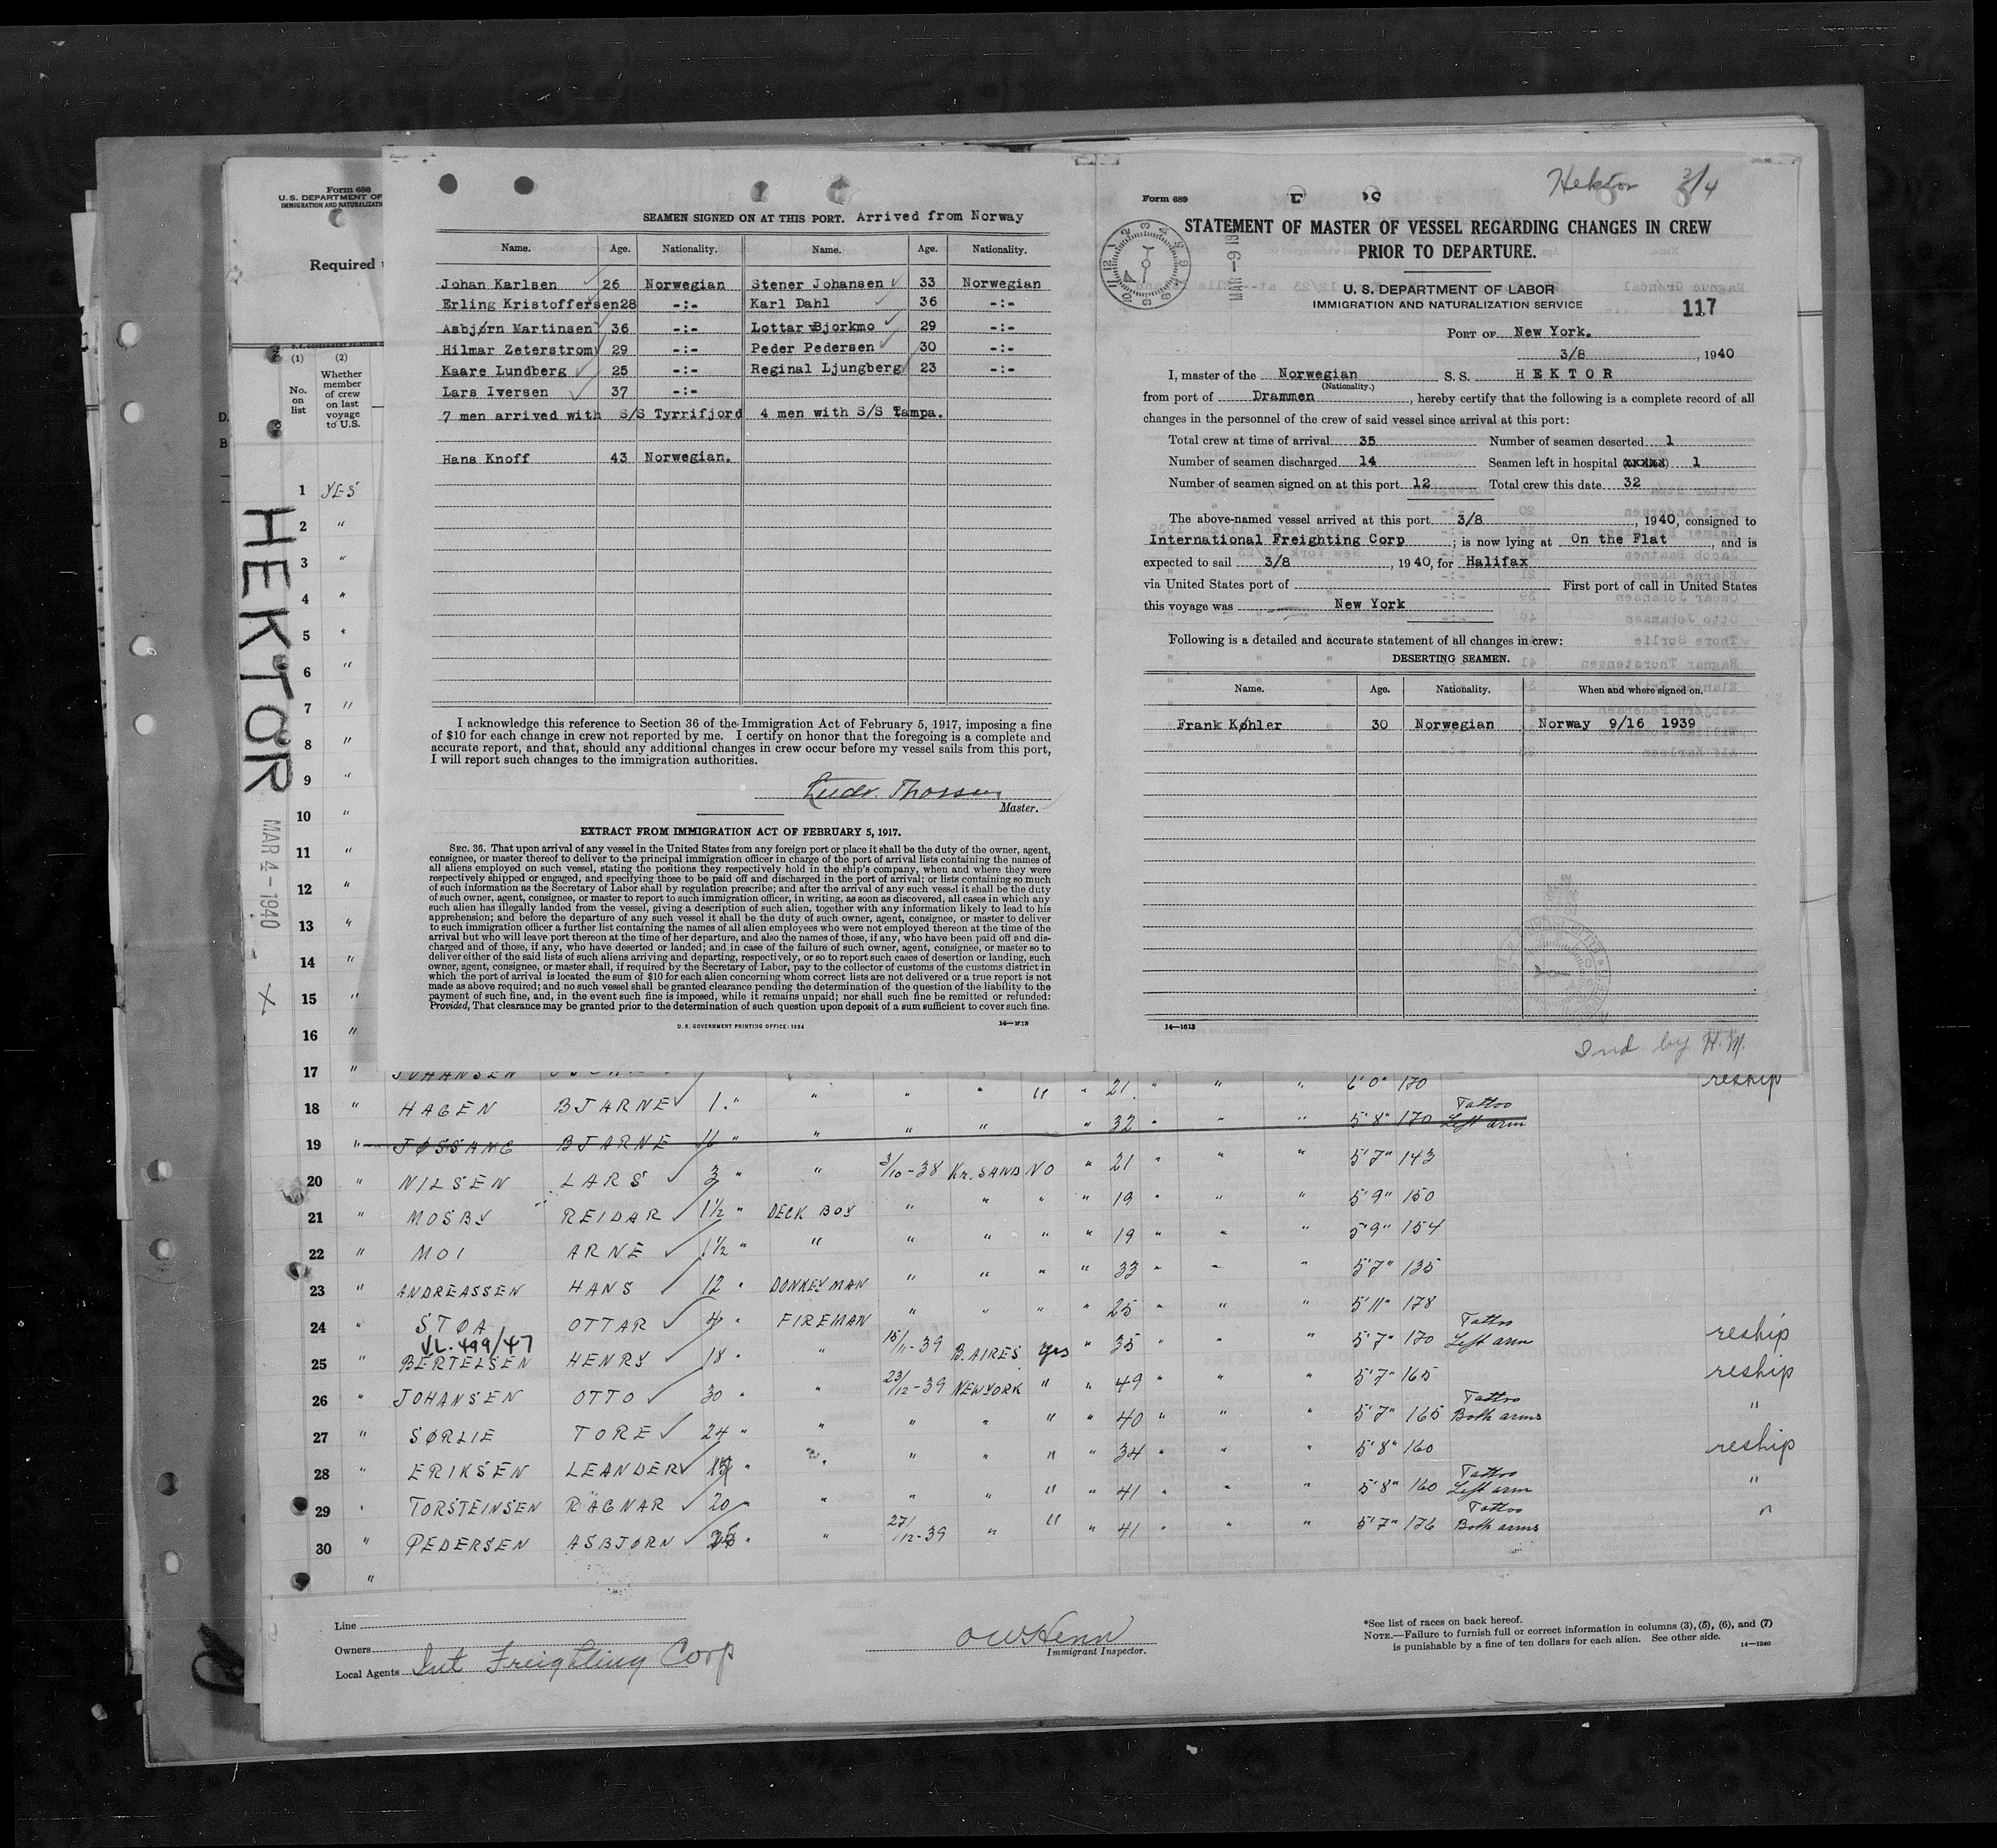 Form 688
U.S. DEPARTMENT OF
IMMIGRATION AND NATURALIZATI
Required
(1) (2)
No. on list
Whether member of crew on last voyage to U.S.
HEKTOR
MAR 4-1940
X
1 YES
2 "
3 "
4 "
5 "
6 "
7 "
8 "
9 "
10 "
11 "
12 "
13 "
14 "
15 "
16 "
SEAMEN SIGNED ON AT THIS PORT. Arrived from Norway
Name. Age. Nationality. Name. Age. Nationality.
Johan Karlsen 26 Norwegian Stener Johansen 33 Norwegian
Erling Kristoffersen 28 -:- Karl Dahl 36 -:-
Asbjørn Martinsen 36 -:- Lottar Bjorkmo 29 -:-
Hilmar Zeterstrom 29 -:- Peder Pedersen 30 -:-
Kaare Lundberg 25 -:- Reginal Ljungberg 23 -:-
Lars Iversen 37 -:-
7 men arrived with S/S Tyrrifjord 4 men with S/S Tampa.
Hans Knoff 43 Norwegian.
I acknowledge this reference to Section 36 of the Immigration Act of February 5, 1917, imposing a fine
of $10 for each change in crew not reported by me. I certify on honor that the foregoing is a complete and
accurate report, and that, should any additional changes in crew occur before my vessel sails from this port,
I will report such changes to the immigration authorities.
Master.
EXTRACT FROM IMMIGRATION ACT OF FEBRUARY 5, 1917.
SEC. 36. That upon arrival of any vessel in the United States from any foreign port or place it shall be the duty of the owner, agent,
consignee, or master thereof to deliver to the principal immigration officer in charge of the port of arrival lists containing the names of
all aliens employed on such vessel, stating the positions they respectively hold in the ship's company, when and where they were
respectively shipped or engaged, and specifying those to be paid off and discharged in the port of arrival; or lists containing so much
of such information as the Secretary of Labor shall by regulation prescribe; and after the arrival of any such vessel it shall be the duty
of such owner, agent, consignee, or master to report to such immigration officer, in writing, as soon as discovered, all cases in which any
such alien has illegally landed from the vessel, giving a description of such alien, together with any information likely to lead to his
apprehension; and before the departure of any such vessel it shall be the duty of such owner, agent, consignee, or master to deliver
to such immigration officer a further list containing the names of all alien employees who were not employed thereon at the time of the
arrival but who will leave port thereon at the time of her departure, and also the names of those, if any, who have been paid off and dis-
charged and of those, if any, who have deserted or landed; and in case of the failure of such owner, agent, consignee, or master so to
deliver either of the said lists of such aliens arriving and departing, respectively, or so to report such cases of desertion or landing, such
owner, agent, consignee, or master shall, if required by the Secretary of Labor, pay to the collector of customs of the customs district in
which the port of arrival is located the sum of $10 for each alien concerning whom correct lists are not delivered or a true report is not
made as above required; and no such vessel shall be granted clearance pending the determination of the question of the liability to the
payment of such fine, and, in the event such fine is imposed, while it remains unpaid; nor shall such fine be remitted or refunded:
Provided, That clearance may be granted prior to the determination of such question upon deposit of a sum sufficient to cover such fine.
U. S. GOVERNMENT PRINTING OFFICE: 1934
Hektor 3/4
Form 689
STATEMENT OF MASTER OF VESSEL REGARDING CHANGES IN CREW
PRIOR TO DEPARTURE.
U. S. DEPARTMENT OF LABOR
IMMIGRATION AND NATURALIZATION SERVICE
117
PORT OF New York.
3/8, 1940
I, master of the Norwegian S. S. HEKTOR
(Nationality.)
from port of Drammen, hereby certify that the following is a complete record of all
changes in the personnel of the crew of said vessel since arrival at this port:
Total crew at time of arrival 35 Number of seamen deserted 1
Number of seamen discharged 14 Seamen left in hospital (xxxxx) 1
Number of seamen signed on at this port 12 Total crew this date 32
The above-named vessel arrived at this port 3/8, 1940, consigned to
International Freighting Corp; is now lying at On the Flat, and is
expected to sail 3/8, 1940, for Halifax
via United States port of First port of call in United States
this voyage was New York
Following is a detailed and accurate statement of all changes in crew:
DESERTING SEAMEN.
Name. Age. Nationality. When and where signed on.
Frank Køhler 30 Norwegian Norway 9/16 1939
14—1613
Ind. by H.M.
17 " JOHANSEN " " 21 " " " 6'0" 170 reship
18 " HAGEN BJARNE 1 " " " " " 32 " " " 5'8" 170 Tattoo Left arm
19 " JØSSANG BJARNE 16 " " 3/10-38 Kr. SAND NO " 21 " " " 5'7" 143
20 " NILSEN LARS 3 " " " " " " 19 " " " 5'9" 150
21 " MOSBY REIDAR 1½ " DECK BOY " " " " 19 " " " 5'9" 154
22 " MOI ARNE 1½ " " " " " " 33 " " " 5'7" 135
23 " ANDREASSEN HANS 12 " DONKEYMAN " " " " 25 " " " 5'11" 178
24 " STØA OTTAR 4 " FIREMAN 15/11-39 B. AIRES yes " 35 " " " 5'7" 170 Tattoo Left arm reship
VL. 499/47
25 " BERTELSEN HENRY 18 " " 23/12-39 NEW YORK " " 49 " " " 5'7" 165 reship
26 " JOHANSEN OTTO 30 " " " " " " 40 " " " 5'7" 165 Tattoo Both arms "
27 " SØRLIE TORE 24 " " " " " " 34 " " " 5'8" 160 reship
28 " ERIKSEN LEANDER " " " " " " 41 " " " 5'8" 160 Tattoo Left arm "
29 " TORSTEINSEN RAGNAR 20 " " 27/12-39 " " " 41 " " " 5'7" 176 Tattoo Both arms "
30 " PEDERSEN ASBJØRN "
"
Line
Owners
Local Agents Int Freighting Corp
Immigrant Inspector.
*See list of races on back hereof.
NOTE.—Failure to furnish full or correct information in columns (3), (5), (6), and (7)
is punishable by a fine of ten dollars for each alien. See other side. 14—1240